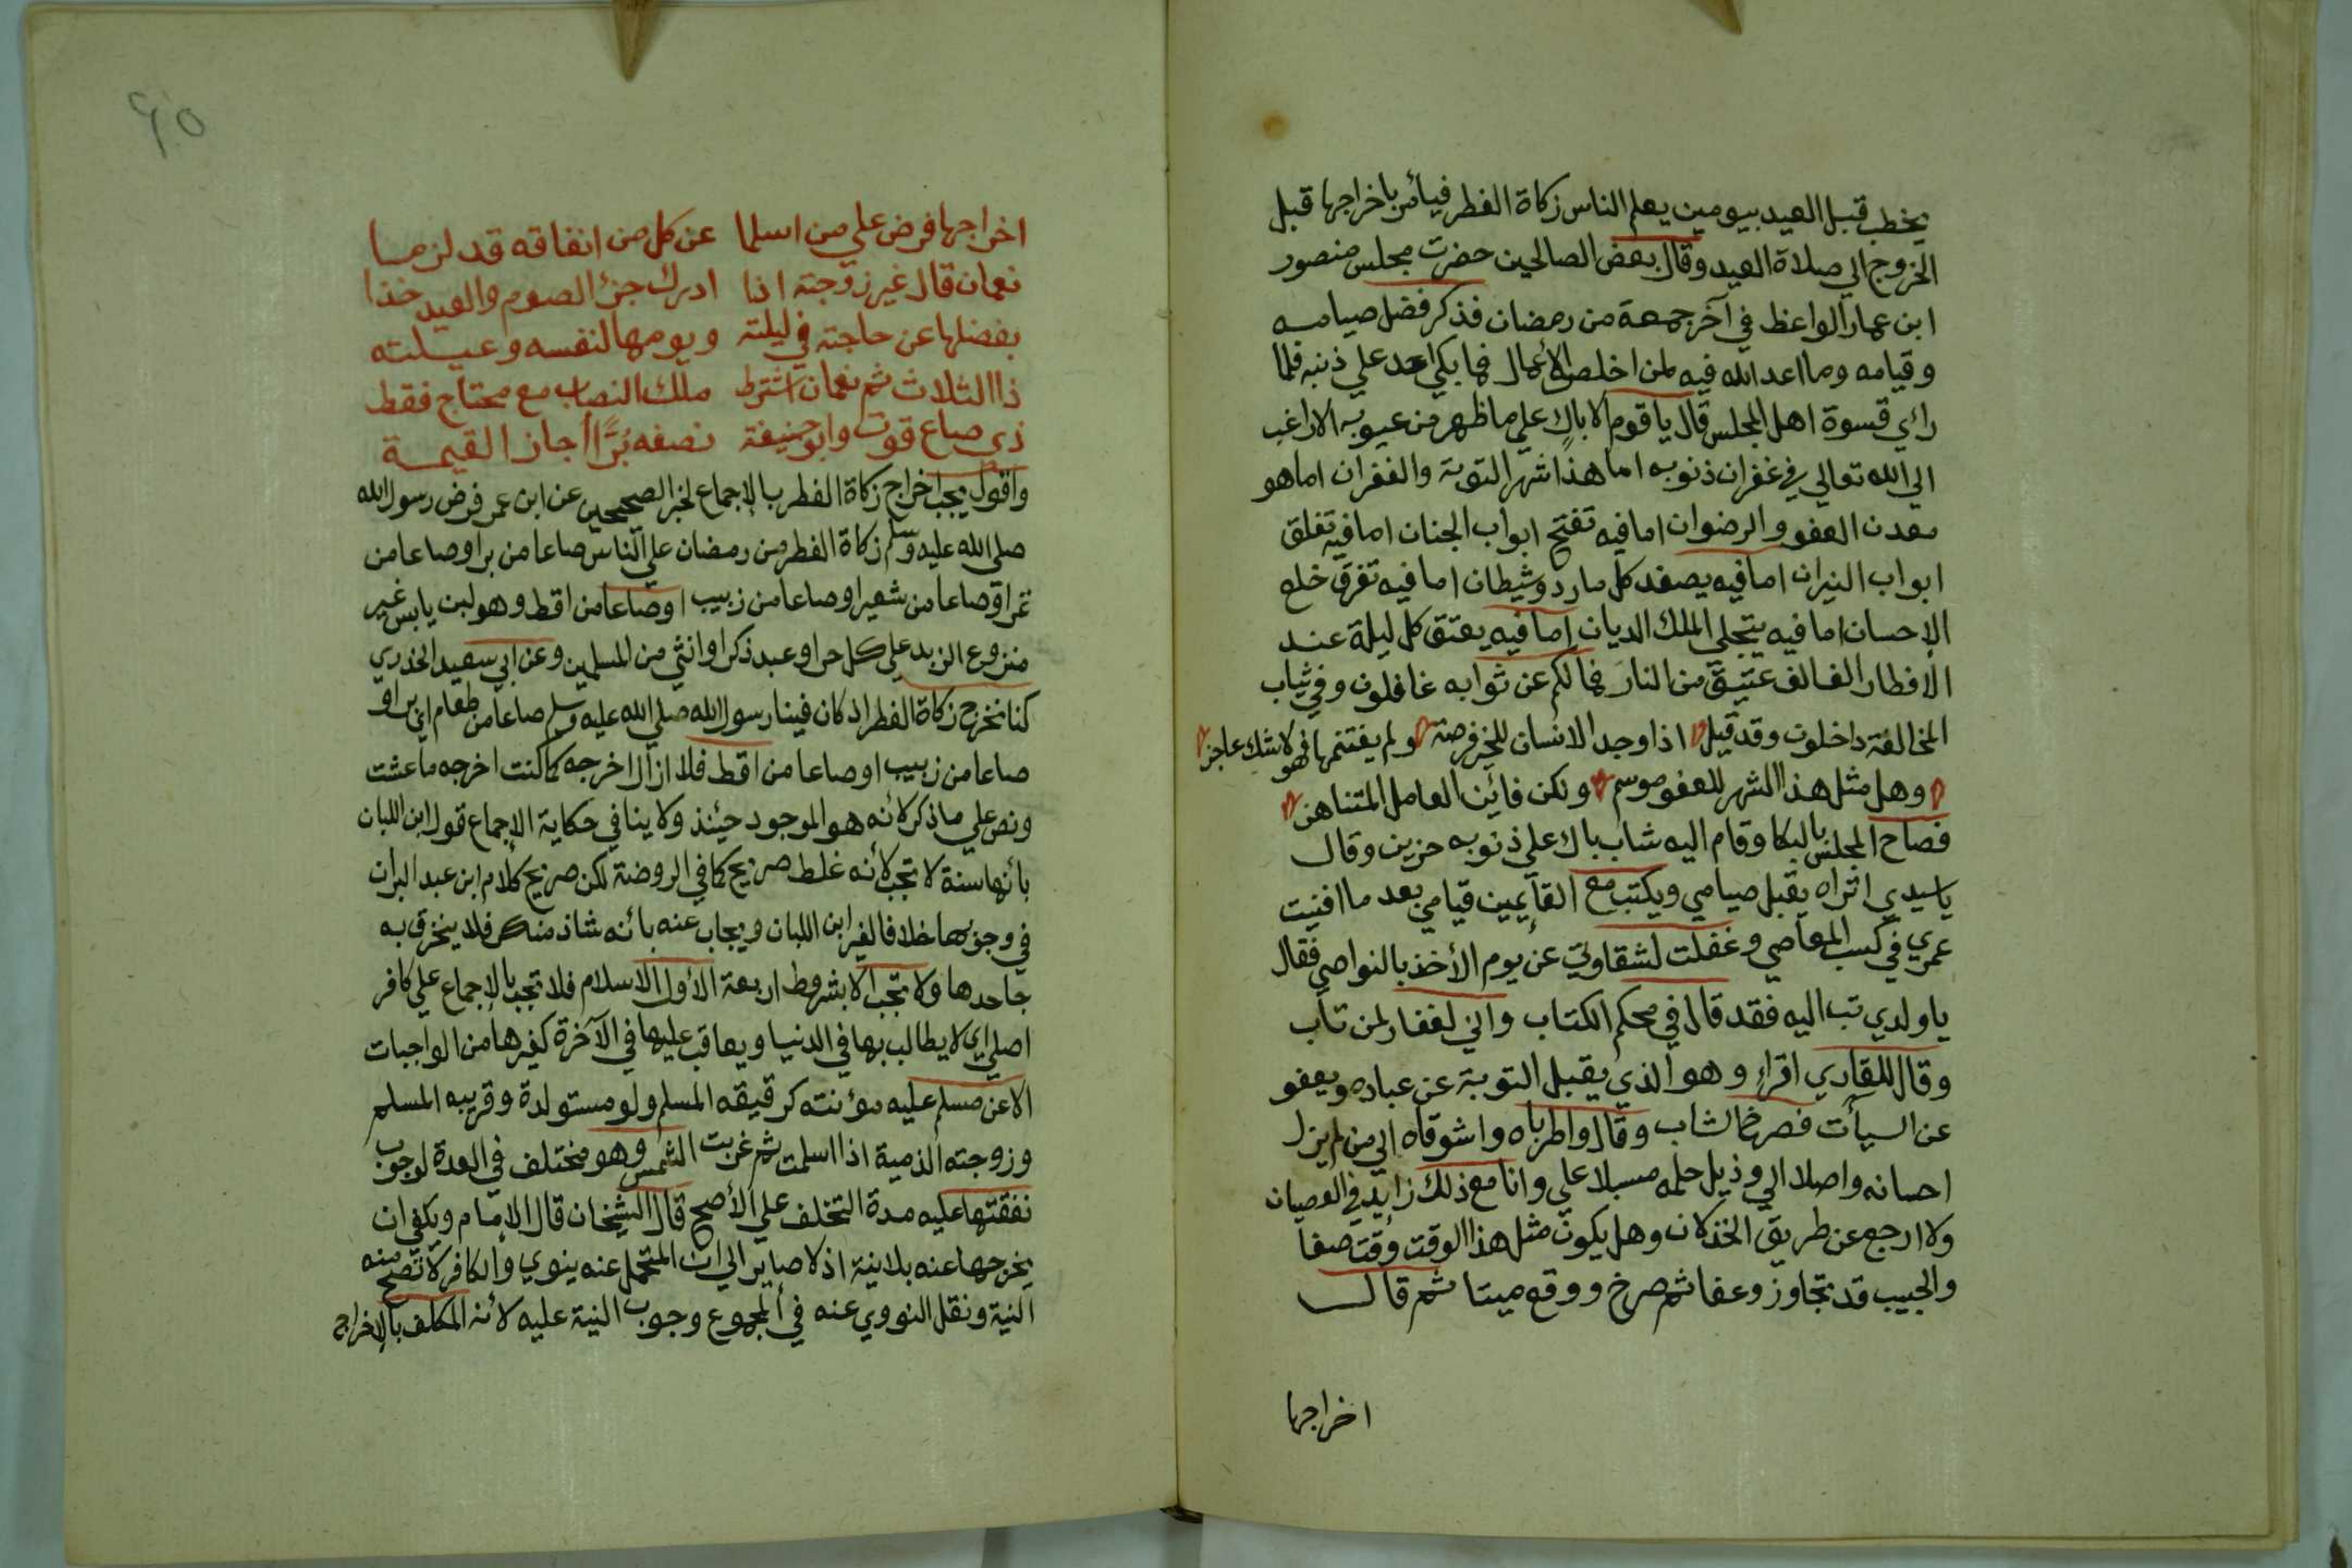 يخطب قبل العيد بيومين يعلم الناس زكاة الفطر فيأمر باخراجها قبل
الخروج الي صلاة العيد وقال بعض الصالحين حضرت مجلس منصور
ابن عمار الواعظ في آخر جمعة من رمضان فذكر فضل صيامه
وقيامه وما اعد الله فيه لمن اخلص الأعمال فما بكي احد علي ذنبه فلما
رائي قسوة اهل المجلس قال يا قوم الا باك علي ما ظهر من عيوبه الا راغب
الي الله تعالي في غفران ذنوبه اما هذا شهر التوبة والغفران اما هو
معدن العفو والرضوان اما فيه تفتح ابواب الجنان اما فيه تغلق
ابواب النيران اما فيه يصفد كل مارد وشيطان اما فيه تفرق خلع
الإحسان اما فيه يتجلي الملك الديان اما فيه يعتق كل ليلة عند
الأفطار الف الف عتيق من النار فما لكم عن ثوابه غافلون وفي ثياب
المخالفة داخلون وقد قيل اذا وجد الانسان للخير فرصة ولم يغتنمها فهو لا شك عاجز
وهل مثل هذا الشهر للعفو موسم ولكن فائن العامل المتناهز
فصاح المجلس بالبكا وقام اليه شاب باك علي ذنوبه حزين وقال
يا سيدي اتراه يقبل صيامي ويكتب مع القآيمين قيامي بعد ما افنيت
عمري في كسب المعاصي وغفلت لشقاوتي عن يوم الأخذ بالنواصي فقال
يا ولدي تب اليه فقد قال في محكم الكتاب واني لغفار لمن تاب
وقال للقاري اقراء وهو الذي يقبل التوبة عن عباده ويعفو
عن السيأت فصرخ الشاب وقال واطرباه واشوقاه الي من لم يزل
احسانه واصلا الي وذيل حلمه مسبلا علي وانا مع ذلك زايد في العصيان
ولا ارجع عن طريق الخذلان وهل يكون مثل هذا الوقت وقت صفا
والحبيب قد تجاوز وعفا ثم صرخ ووقع ميتا ثم قال
اخراجها
٤٥
اخراجها فرض علي من اسلما عن كل من انفاقه قد لزما
نعمان قال غير زوجته اذا ادرك جزئ الصوم والعيد خذا
بفضلها عن حاجته في ليلته ويومها لنفسه وعيلته
ذا الثلاث ثم نعمان اشترط ملك النصاب مع محتاج فقط
ذي صاع قوت وابو حنيفة نصفه بُرًّا أجاز القيمة
واقول يجب اخراج زكاة الفطر بالإجماع لخبر الصحيحين عن ابن عمر فرض رسول الله
صلي الله عليه وسلم زكاة الفطر من رمضان علي الناس صاعا من بر او صاعا من
تمر او صاعا من شعير او صاعا من زبيب او صاعا من اقط وهو لبن يابس غير
منزوع الزبد علي كل حر او عبد ذكر او انثي من المسلمين وعن ابي سعيد الخدري
كنا نخرج زكاة الفطر اذ كان فينا رسول الله صلي الله عليه وسلم صاعا من طعام اي بر او
صاعا من زبيب او صاعا من اقط فلا ازال اخرجه كما كنت اخرجه ما عشت
ونص علي ما ذكر لأنه هو الموجود حيئنذ ولا ينافي حكاية الإجماع قول ابن اللبان
بأنها سنة لا تجب لأنه غلط صريح كما في الروضة لكن صريح كلام ابن عبد البر ان
في وجوبها خلافا لغير ابن اللبان ويجاب عنه بأنه شاذ منكر فلا ينخرق به
جاحدها ولا تجب الا بشروط اربعة الأول الاسلام فلا تجب بالإجماع علي كافر
اصلي اي لا يطالب بها في الدنيا ويعاقب عليها في الآخرة كغيرها من الواجبات
الا عن مسلم عليه مؤنته كرقيقه المسلم ولو مستولدة وقريبه المسلم
وزوجته الذمية اذا اسلمت ثم غربت الشمس وهو مختلف في العدة لوجوب
نفقتها عليه مدة التخلف علي الأصح قال الشيخان قال الإمام ويكفي ان
يخرجها عنه بلا نية اذ لا صاير الي ان المتحمل عنه ينوي والكافر لا تصح منه
النية ونقل النووي عنه في المجموع وجوب النية عليه لأنه المكلف بالإخراج